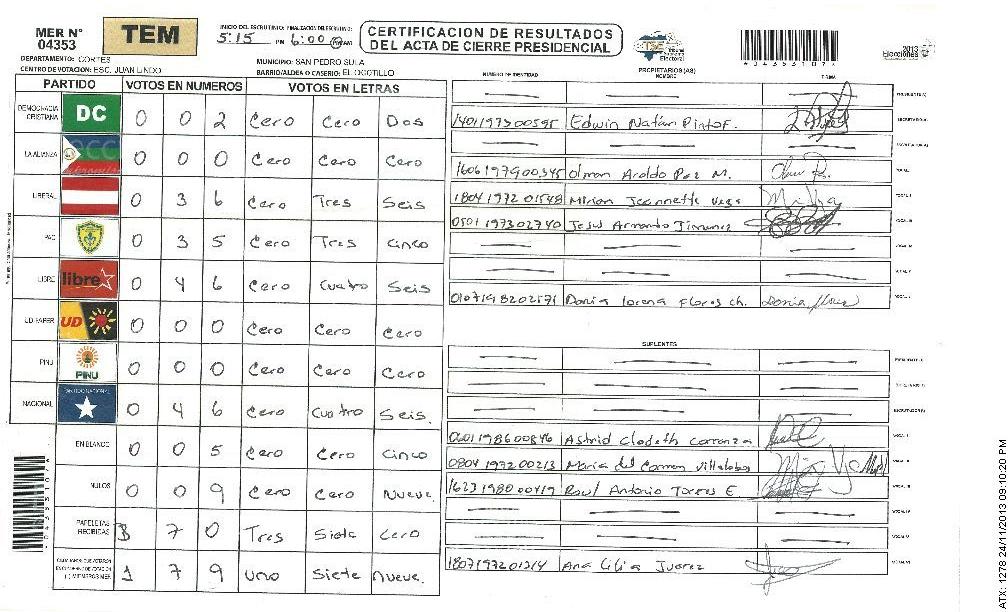 MER N° 04353
TEM
INICIO DEL ESCRUTINIO: FINALIZACION DEL ESCRUTINIO:
5:15 PM 6:00
CERTIFICACION DE RESULTADOS
DEL ACTA DE CIERRE PRESIDENCIAL
TSE Tribunal Supremo Electoral
0435310774
2013 Elecciones
DEPARTAMENTO: CORTES
MUNICIPIO: SAN PEDRO SULA
CENTRO DE VOTACION: ESC. JUAN LINDO
BARRIO/ALDEA O CASERIO: EL OCOTILLO
NUMERO DE IDENTIDAD PROPIETARIOS (AS) NOMBRE FIRMA
PARTIDO VOTOS EN NUMEROS VOTOS EN LETRAS
DEMOCRACIA CRISTIANA DC 0 0 2 Cero Cero Dos
LA ALIANZA 0 0 0 Cero Cero Cero
LIBERAL 0 3 6 Cero Tres Seis
PAC 0 3 5 Cero Tres Cinco
LIBRE libre 0 4 6 Cero Cuatro Seis
UD-FAPER UD 0 0 0 Cero Cero Cero
PINU PINU 0 0 0 Cero Cero Cero
NACIONAL PARTIDO NACIONAL 0 4 6 Cero Cuatro Seis
EN BLANCO 0 0 5 Cero Cero Cinco
NULOS 0 0 9 Cero Cero Nueve
PAPELETAS RECIBIDAS 3 7 0 Tres Siete Cero
1 7 9 Uno Siete Nueve
PRESIDENTE (A)
1401197300595 Edwin Natán Pinto F. SECRETARIO (A)
ESCRUTADOR (A)
1606197900345 Olman Aroldo Paz M.
1804197201548 Miriam Jeannette Vega
0501197302740 Jesus Armando Jimenez
0107198202171 Dania Lorena Flores Ch. Dania Flores
SUPLENTES
0601198600846 Astrid Clodeth Carranza
0804197200213 Maria del Carmen Villalobos
1623198000419 Raul Antonio Torres E
1807197201214 Ana Lilia Juarez
ATX: 1278 24/11/2013 09:10:20 PM